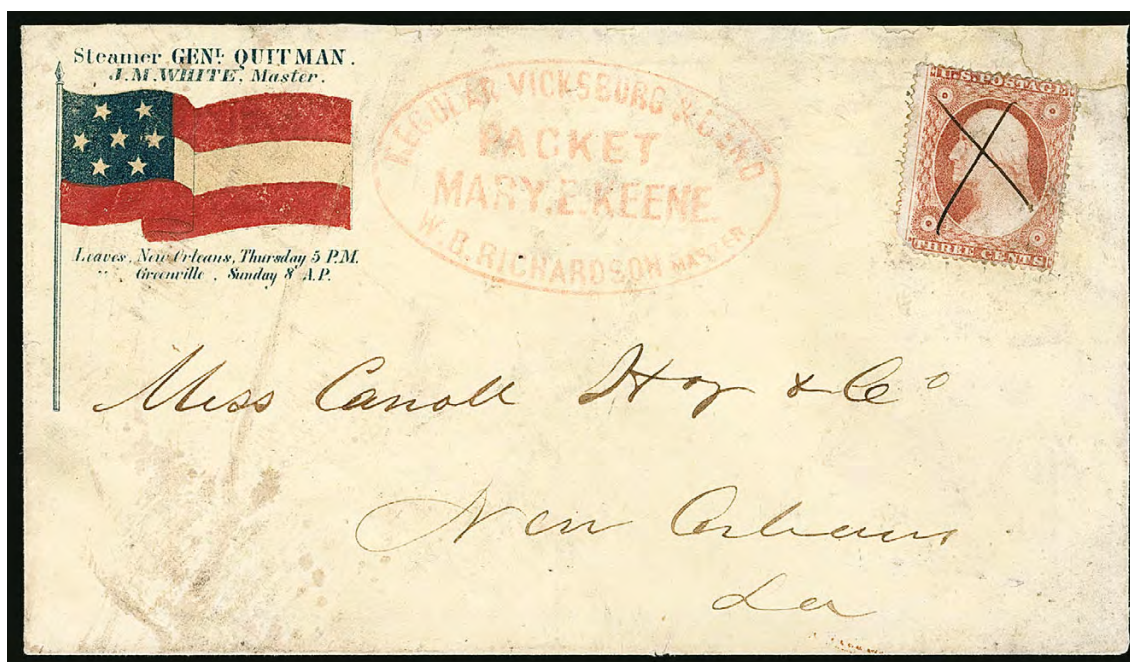 Steamer GENL. QUITMAN.
J.M. WHITE, Master.
Leaves, New Orleans, Thursday 5 P.M.
" Greenville, Sunday 8 A.P.
REGULAR VICKSBURG & BEND
PACKET
MARY. E. KEENE.
W. B. RICHARDSON MASTER
U.S. POSTAGE
THREE CENTS
Mess Carroll Hoy & Co
New Orleans
La